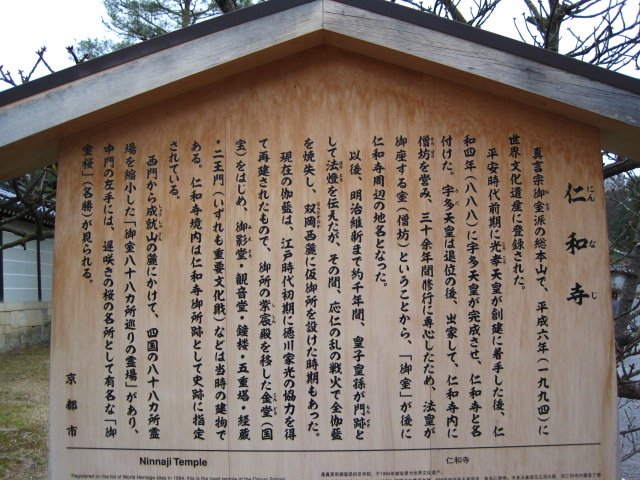 仁和寺
にんなじ
真言宗御室派の総本山で、平成六年(一九九四)に
世界文化遺産に登録された。
平安時代前期に光孝天皇が創建に着手した後、仁
和四年(八八八)に宇多天皇が完成させ、仁和寺と名
付けた。宇多天皇は退位の後、出家して、仁和寺内に
僧坊を営み、三十余年間修行に専心したため、法皇が
御座する室(僧坊)ということから、「御室」が後に
仁和寺周辺の地名となった。
以後、明治維新まで約千年間、皇子皇孫が門跡と
して法燈を伝えたが、その間、応仁の乱の戦火で全伽藍
を焼失し、双岡西麓に仮御所を設けた時期もあった。
現在の伽藍は、江戸時代初期に徳川家光の協力を得
て再建されたもので、御所の紫宸殿を移した金堂(国
宝)をはじめ、御影堂・観音堂・鐘楼・五重塔・経蔵
・二王門(いずれも重要文化財)などは当時の建物で
ある。仁和寺境内は仁和寺御所跡として史跡に指定
されている。
西門から成就山の麓にかけて、四国の八十八カ所霊
場を縮小した「御室八十八カ所巡りの霊場」があり、
中門の左手には、遅咲きの桜の名所として有名な「御
室桜」(名勝)が見られる。
京都市
Ninnaji Temple
Registered on the list of World Heritage sites in 1994, this is the head temple of the Omuro School
仁和寺